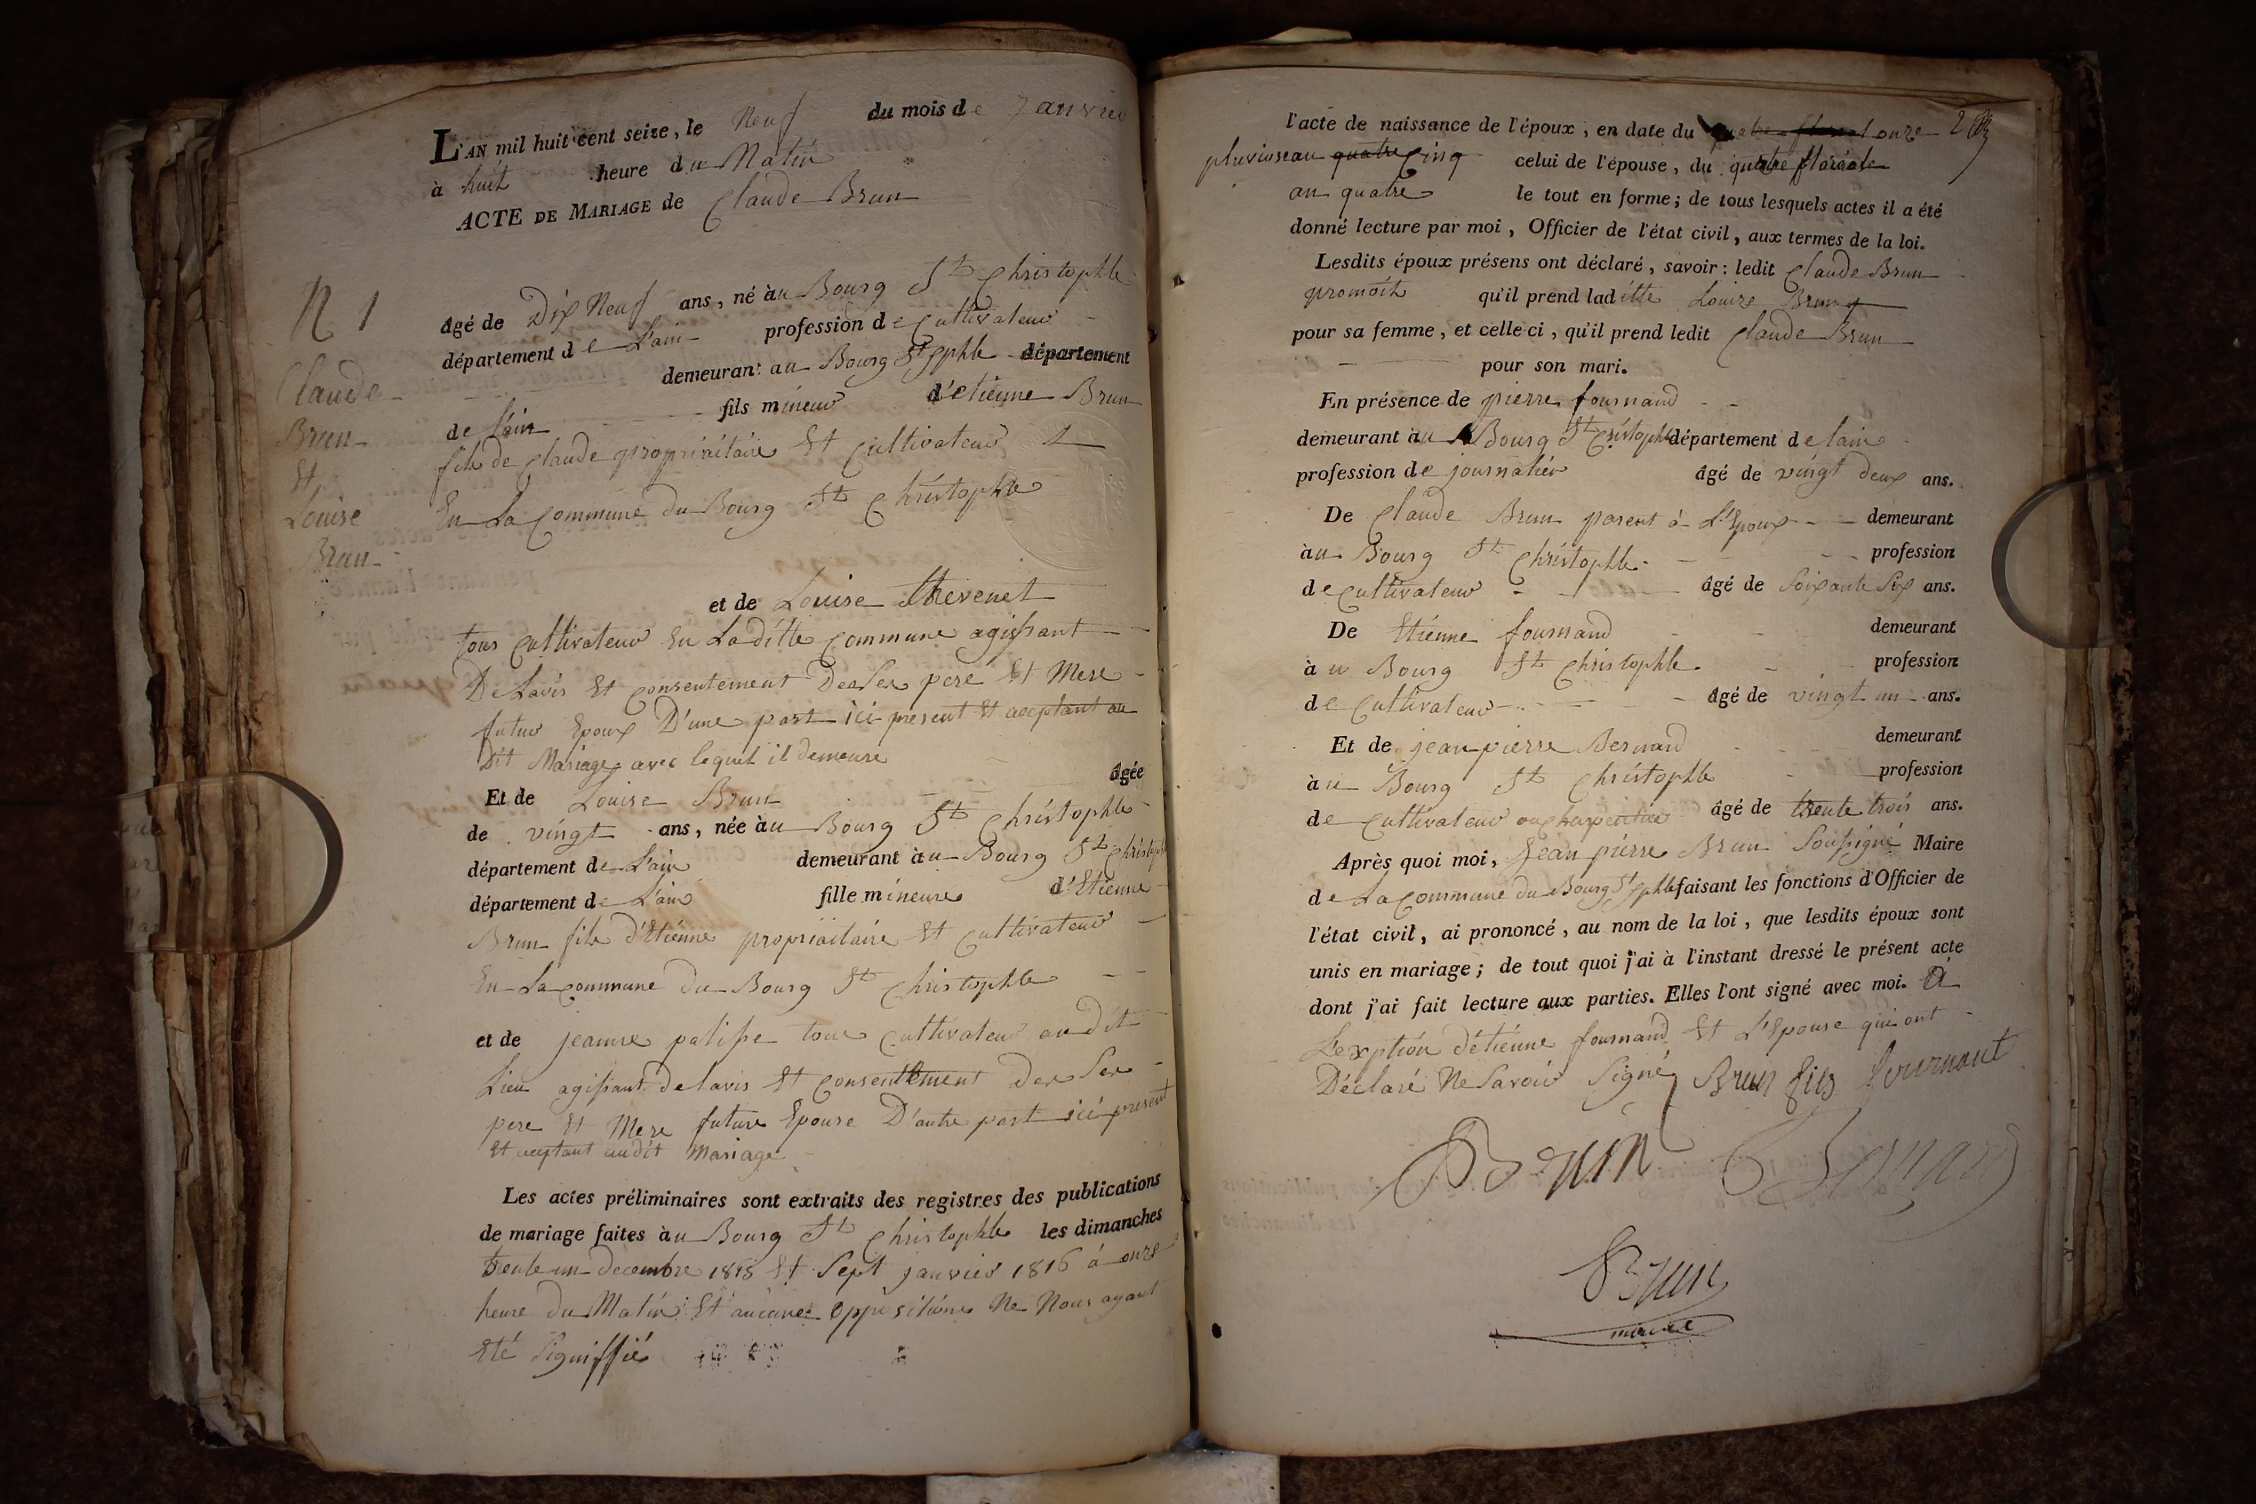 L'AN mil huit cent seize, le Neuf du mois de Janvier
à huit heure du Matin
ACTE DE MARIAGE de Claude Brun
N 1
Claude
Brun
Et
Louise
Brun
âgé de Dix Neuf ans, né àu Bourg St Christophle
département de L'ain profession de Cultivateur
demeurant au Bourg St Cphle département
de l'ain fils mineur d'etienne Brun
fils de Claude propriaitaire Et Cultivateur
En La Commune du Bourg St Christophle
et de Louise thevenet
tous Cultivateur En Laditte Commune agissant
De Lavis Et Consentement De Ses pere Et Mere
futur Epoux D'une part ici present Et acceptant au
Dit Mariage avec lequel il demeure
Et de Louise Brun âgée
de vingt ans, née àu Bourg St Christophle
département de L'ain demeurant àu Bourg St Christople
département de L'ain fille mineure d'Etienne
Brun fils d'Etienne propriaitaire Et Cultivateur
En La Commune Du Bourg St Christophle
et de jeanne palisse tous Cultivateur audit
Lieu agissant de lavis Et Consentement De Ses
pere Et Mere future Epouse D'autre part ici present
Et aceptant audit Mariage
Les actes préliminaires sont extraits des registres des publications
de mariage faites àu Bourg St Christophle les dimanches
trente un decembre 1815 Et Sept janvier 1816 à onze
heure du Matin Et aucune oppositions Ne Nous ayant
Eté Signiffié
l'acte de naissance de l'époux, en date du quatre floreal onze
pluviose an quatre Cinq celui de l'épouse, du quatre floréale
an quatre le tout en forme; de tous lesquels actes il a été
donné lecture par moi, Officier de l'état civil, aux termes de la loi.
Lesdits époux présens ont déclaré, savoir: ledit Claude Brun
promoit qu'il prend laditte Louise Brun
pour sa femme, et celle ci, qu'il prend ledit Claude Brun
pour son mari.
En présence de pierre fournand
demeurant àu Bourg St Cristophle département de lain
profession de journalier âgé de vingt deux ans.
De Claude Brun parent à L'Epoux demeurant
àu Bourg St Christophle profession
de Cultivateur âgé de Soixante Six ans.
De Etienne fournand demeurant
àu Bourg St Christophle profession
de Cultivateur âgé de vingt un ans.
Et de jean pierre Bernard demeurant
àu Bourg St Christophle profession
de Cultivateur ou Charpentier âgé de trente trois ans.
Après quoi moi, Jean pierre Brun Soussigné Maire
de La Commune du Bourg St Cphle faisant les fonctions d'Officier de
l'état civil, ai prononcé, au nom de la loi, que lesdits époux sont
unis en mariage; de tout quoi j'ai à l'instant dressé le présent acte
dont j'ai fait lecture aux parties. Elles l'ont signé avec moi. à
L'exption d'étienne fournand Et L'Epouse qui ont
Déclaré Ne Savoir Signé Brun fils fournant
Brun Bernard
Brun
maire